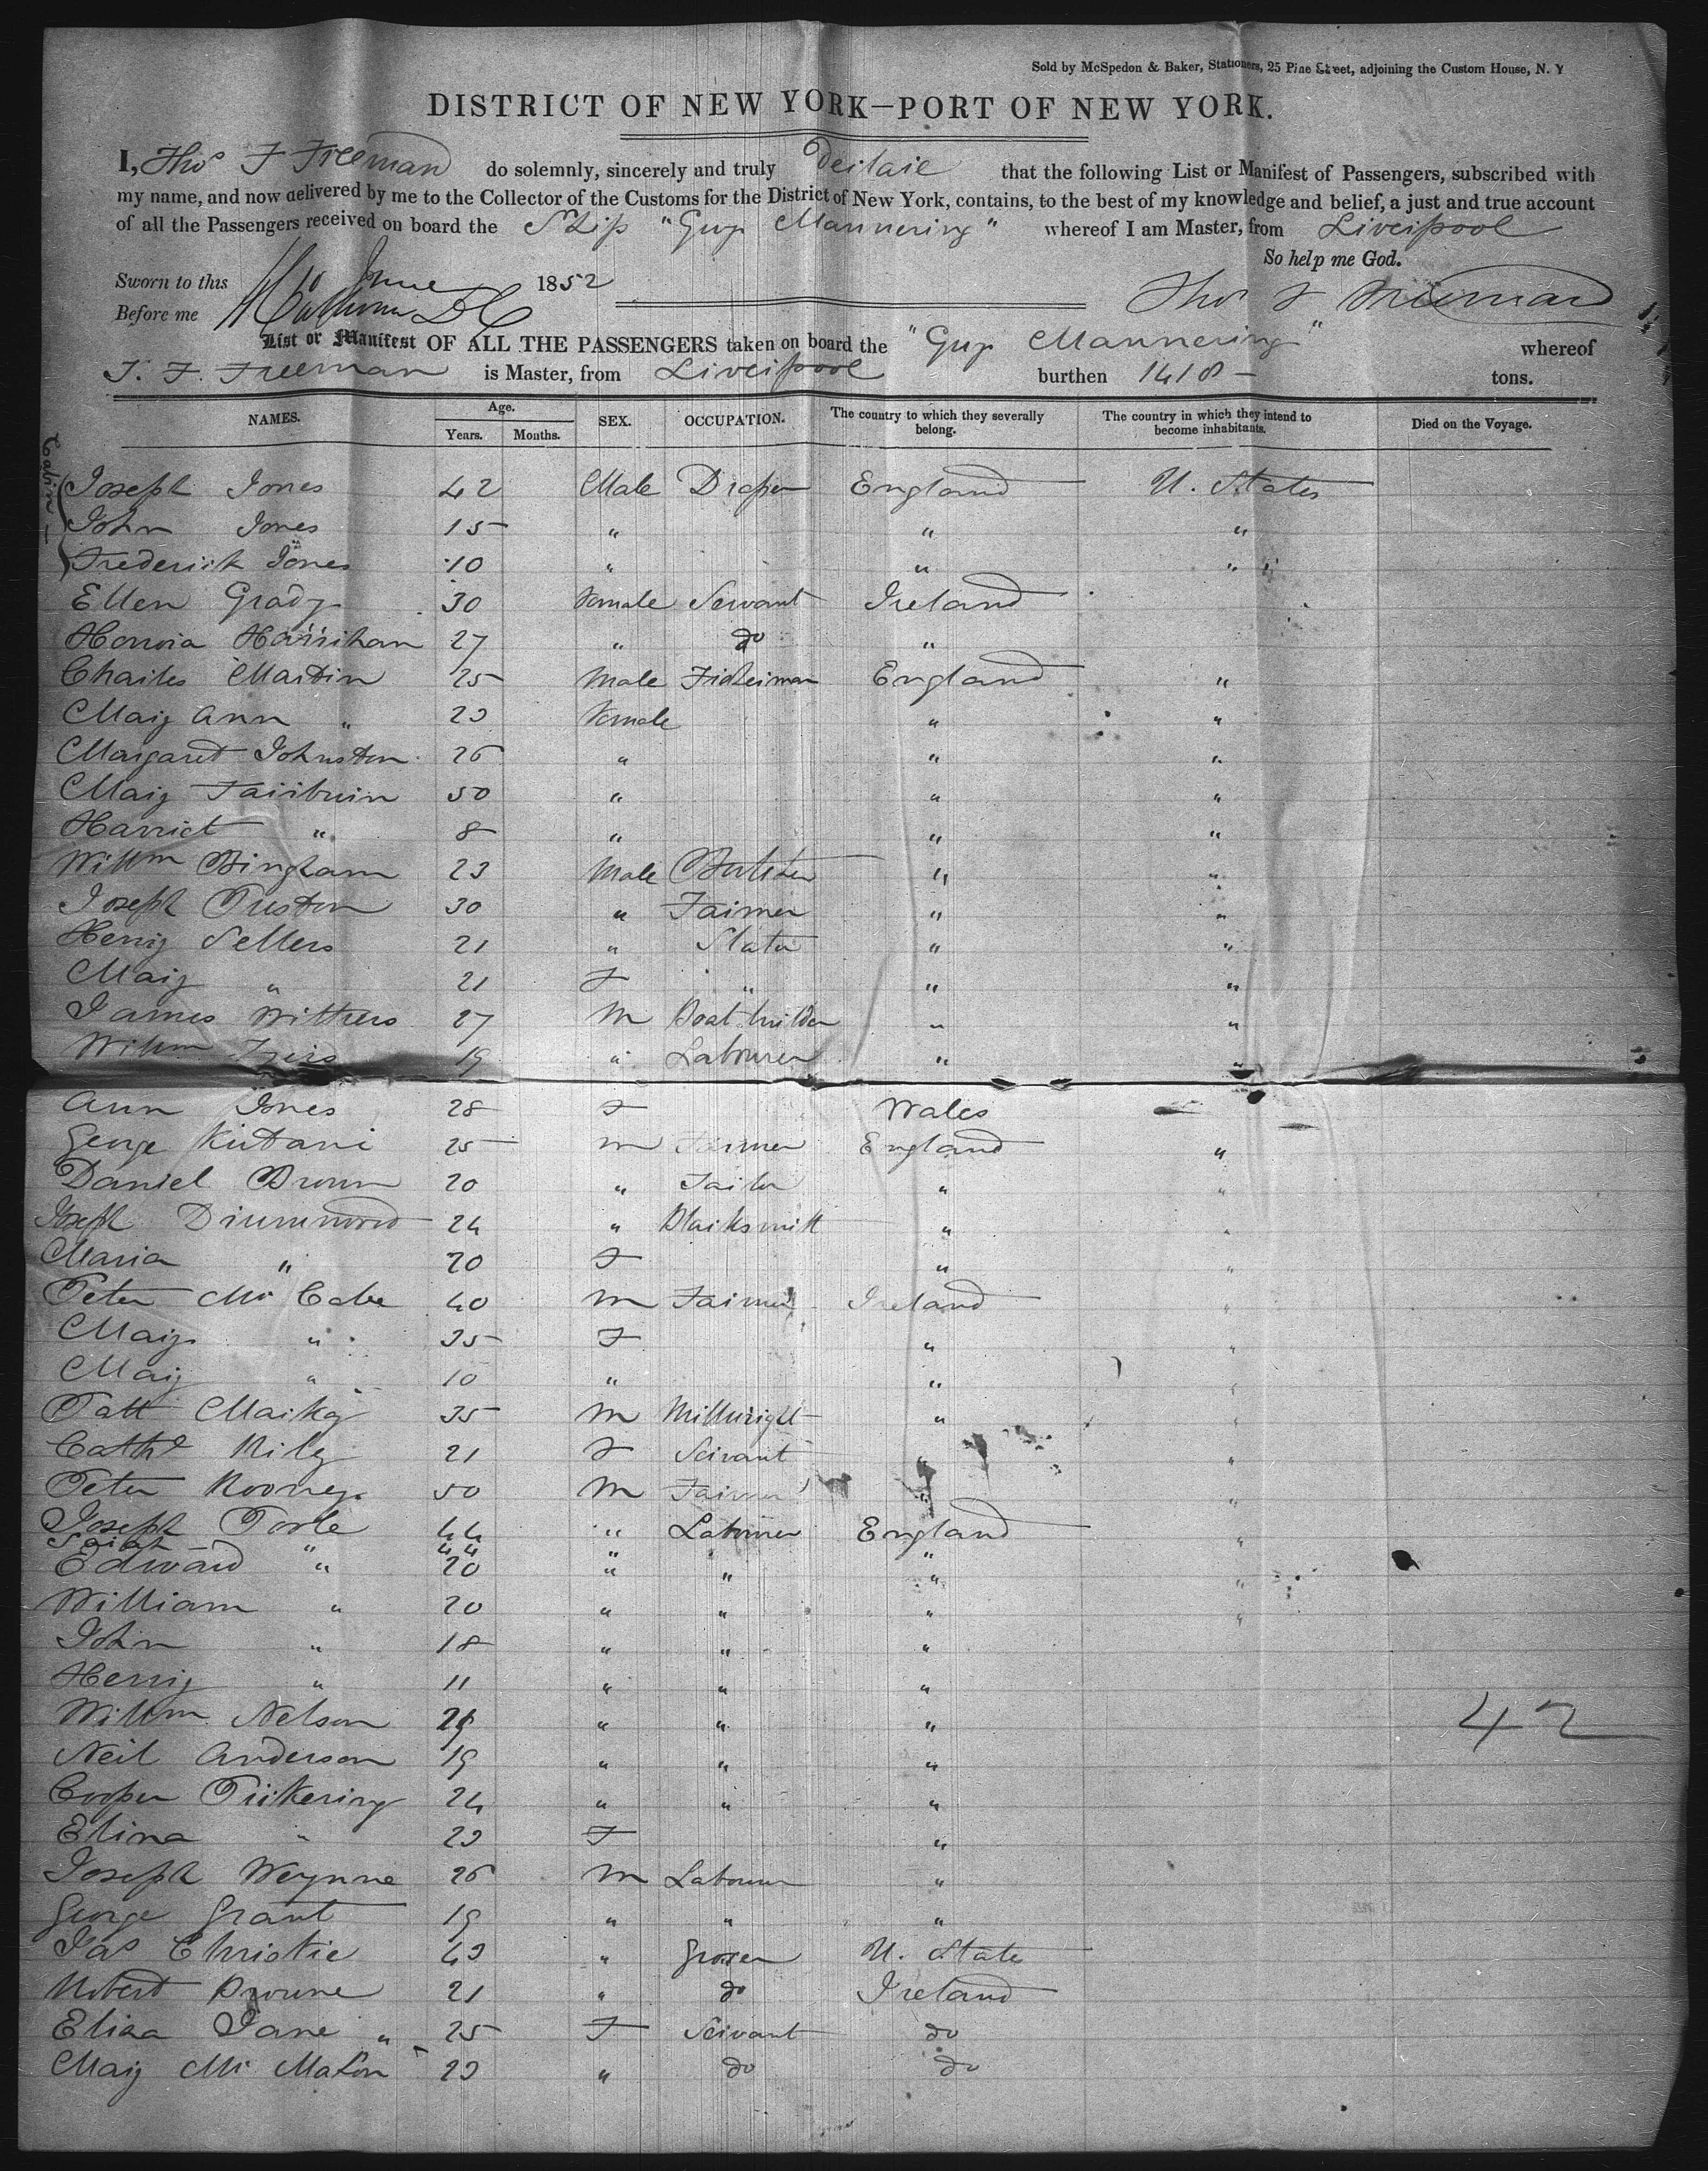 Sold by McSpedon & Baker, Stationers, 25 Pine Street, adjoining the Custom House, N. Y
DISTRICT OF NEW YORK—PORT OF NEW YORK.
I, Thos F Freeman do solemnly, sincerely and truly Declare that the following List or Manifest of Passengers, subscribed with
my name, and now delivered by me to the Collector of the Customs for the District of New York, contains, to the best of my knowledge and belief, a just and true account
of all the Passengers received on board the Ship "Guy Mannering" whereof I am Master, from Liverpool
So help me God.
Sworn to this June 1852
Before me Thos F Freeman
List or Manifest OF ALL THE PASSENGERS taken on board the "Guy Mannering" whereof
T. F. Freeman is Master, from Liverpool burthen 1418 – tons.
NAMES. Age. Years. Months. SEX. OCCUPATION. The country to which they severally belong. The country in which they intend to become inhabitants. Died on the Voyage.
Cabin –
Joseph Jones 42 Male Draper England U. States
John Jones 15 " " "
Frederick Jones 10 " " "
Ellen Grady 30 Female Servant Ireland
Honoria Harrihan 27 " do "
Charles Martin 25 Male Fisherman England "
Mary Ann " 23 Female " "
Margaret Johnston 26 " " "
Mary Fairburn 50 " " "
Harriet " 8 " " "
Willm Bingham 23 Male Butcher " "
Joseph Preston 30 " Farmer " "
Henry Sellers 21 " Slater " "
Mary " 21 F " " "
James Withers 27 M Boat builder " "
Willm 19 " Labourer " "
Ann Jones 28 F Wales
George 25 M Farmer England "
Daniel Brown 20 " Tailor " "
Joseph Drummond 24 " Blacksmith " "
Maria " 20 F " "
Peter Mc Cabe 40 M Farmer Ireland "
Mary " 35 F " "
Mary " 10 " " "
Patt Markey 35 M Millwright " "
Cathe Rily 21 F Servant " "
Peter Rooney 50 M Farmer " "
Joseph Poole 44 " Labourer England "
Sarah " 44 " "
Edward " 20 " " " "
William " 20 " " " "
John " 18 " " "
Henry " 11 " " "
Willm Nelson " " " 42
Neil Anderson 19 " " "
Cooper Pickering 24 " " "
Elina " 23 F "
Joseph Weynne 26 M Labourer "
George Grant 19 " " "
Jas Christie 43 " Grocer U. States
Robert Browne 21 " do Ireland
Eliza Jane " 25 F Servant do
Mary Mc Mahon 23 " do do